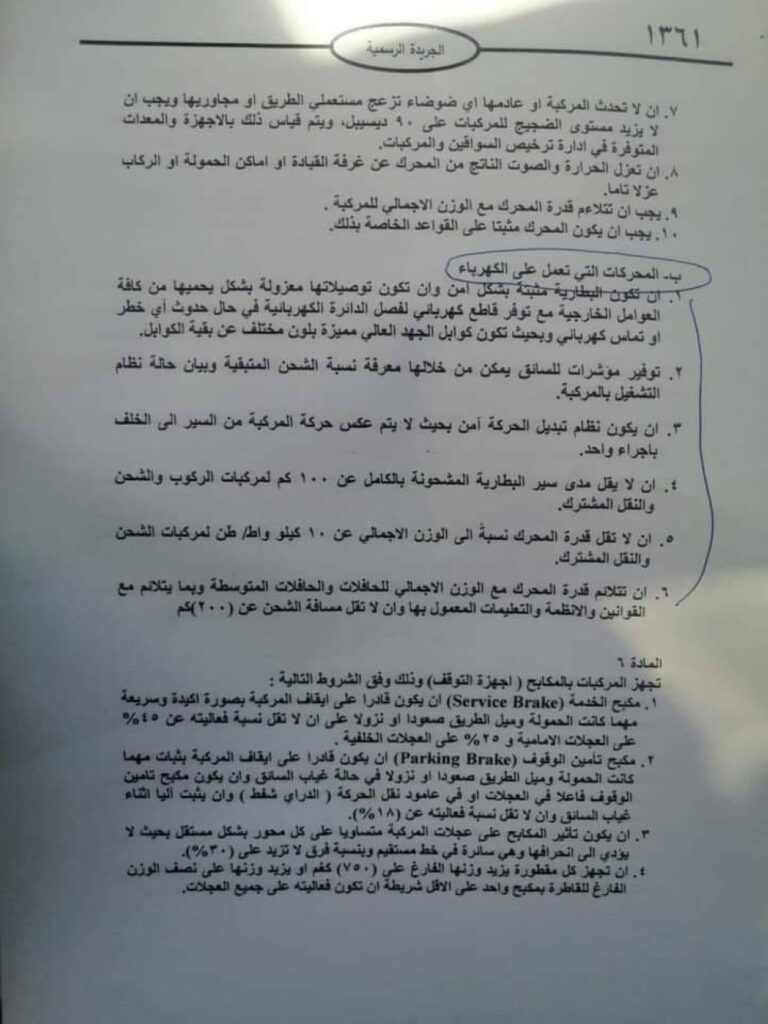 ١٣٦١
الجريدة الرسمية
٧. ان لا تحدث المركبة او عادمها اي ضوضاء تزعج مستعملي الطريق او مجاوريها ويجب ان
لا يزيد مستوى الضجيج للمركبات على ٩٠ ديسيبل، ويتم قياس ذلك بالاجهزة والمعدات
المتوفرة في ادارة ترخيص السواقين والمركبات.
٨. ان تعزل الحرارة والصوت الناتج من المحرك عن غرفة القيادة او اماكن الحمولة او الركاب
عزلا تاما.
٩. يجب ان تتلاءم قدرة المحرك مع الوزن الاجمالي للمركبة .
١٠. يجب ان يكون المحرك مثبتا على القواعد الخاصة بذلك.
ب- المحركات التي تعمل على الكهرباء
١. ان تكون البطارية مثبتة بشكل آمن وان تكون توصيلاتها معزولة بشكل يحميها من كافة
العوامل الخارجية مع توفر قاطع كهربائي لفصل الدائرة الكهربائية في حال حدوث أي خطر
او تماس كهربائي وبحيث تكون كوابل الجهد العالي مميزة بلون مختلف عن بقية الكوابل.
٢. توفير مؤشرات للسائق يمكن من خلالها معرفة نسبة الشحن المتبقية وبيان حالة نظام
التشغيل بالمركبة.
٣. ان يكون نظام تبديل الحركة آمن بحيث لا يتم عكس حركة المركبة من السير الى الخلف
باجراء واحد.
٤. ان لا يقل مدى سير البطارية المشحونة بالكامل عن ١٠٠ كم لمركبات الركوب والشحن
والنقل المشترك.
٥. ان لا تقل قدرة المحرك نسبةً الى الوزن الاجمالي عن ١٠ كيلو واط/ طن لمركبات الشحن
والنقل المشترك.
٦. ان تتلائم قدرة المحرك مع الوزن الاجمالي للحافلات والحافلات المتوسطة وبما يتلائم مع
القوانين والانظمة والتعليمات المعمول بها وان لا تقل مسافة الشحن عن (٢٠٠)كم
المادة ٦
تجهز المركبات بالمكابح ( اجهزة التوقف) وذلك وفق الشروط التالية :
١. مكبح الخدمة (Service Brake) ان يكون قادرا على ايقاف المركبة بصورة اكيدة وسريعة
مهما كانت الحمولة وميل الطريق صعودا او نزولا على ان لا تقل نسبة فعاليته عن ٤٥%
على العجلات الامامية و ٢٥% على العجلات الخلفية .
٢. مكبح تأمين الوقوف (Parking Brake) ان يكون قادرا على ايقاف المركبة بثبات مهما
كانت الحمولة وميل الطريق صعودا او نزولا في حالة غياب السائق وان يكون مكبح تامين
الوقوف فاعلا في العجلات او في عامود نقل الحركة ( الدراي شفط ) وان يثبت آليا اثناء
غياب السائق وان لا تقل نسبة فعاليته عن (١٨%).
٣. ان يكون تأثير المكابح على عجلات المركبة متساويا على كل محور بشكل مستقل بحيث لا
يؤدي الى انحرافها وهي سائرة في خط مستقيم وبنسبة فرق لا تزيد على (٣٠%).
٤. ان تجهز كل مقطورة يزيد وزنها الفارغ على (٧٥٠) كغم او يزيد وزنها على نصف الوزن
الفارغ للقاطرة بمكبح واحد على الاقل شريطة ان تكون فعاليته على جميع العجلات.